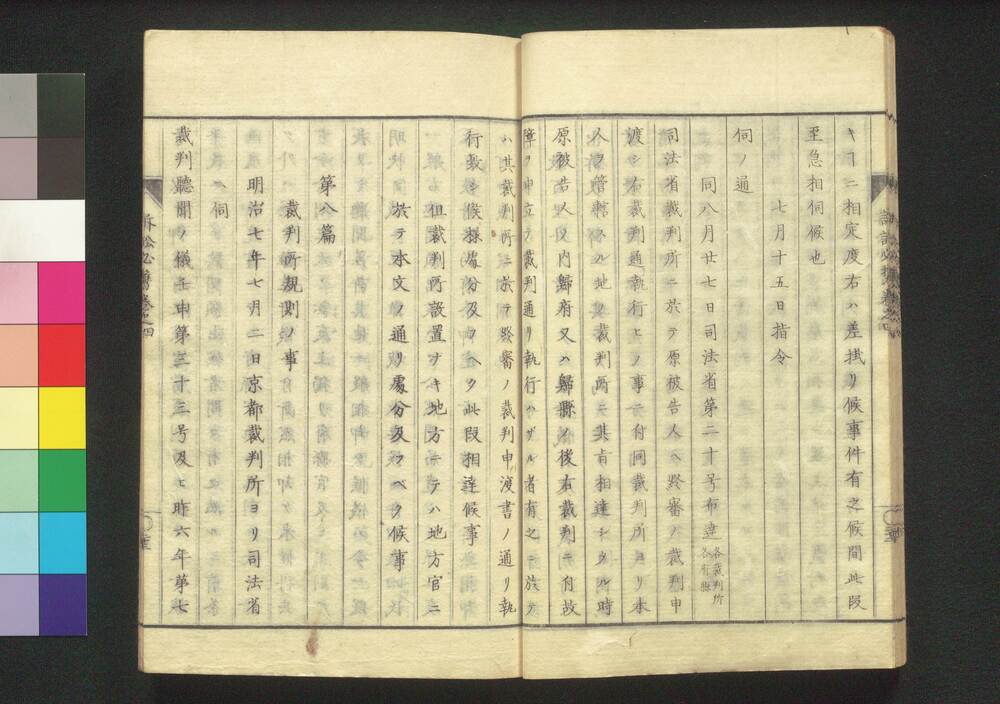 キヿニ相定度右ハ差掛リ候事件有之候間此段
至急相伺候也
七月十五日指令
伺ノ通
同八月廿七日司法省第二十号布達 各裁判所 各府縣
司法省裁判所ニ於テ原被告人ヘ終審ノ裁判申
渡シ右裁判通執行ヒノ事ニ付同裁判所ヨリ本
人ノ管轄スル地ノ裁判所ニ其旨相達シタル時
原被告人又内歸府又ハ歸縣ノ後右裁判ニ付故
障ヲ申立テ裁判通リ執行ハザル者有之ニ於テ
ハ其裁判所ニ於テ終審ノ裁判申渡書ノ通リ執
行致シ候様處分及フヘク此段相達候事
但裁判所設置ナキ地方ニテハ地方官ニ
於テ本文ノ通リ處分及フベク候事
第八篇
裁判所規則ノ事
明治七年七月二日京都裁判所ヨリ司法省
ヘ伺
裁判聽聞ノ儀壬申第三十三号及ヒ昨六年第七
訴訟必携卷之四